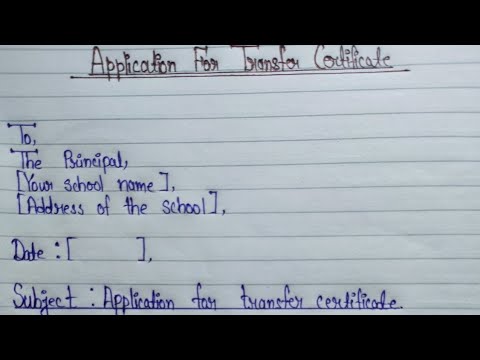 Application For Transfer Certificate
To,
The Principal,
[Your school name],
[Address of the school],
Date : [ ],
Subject : Application for transfer certificate.